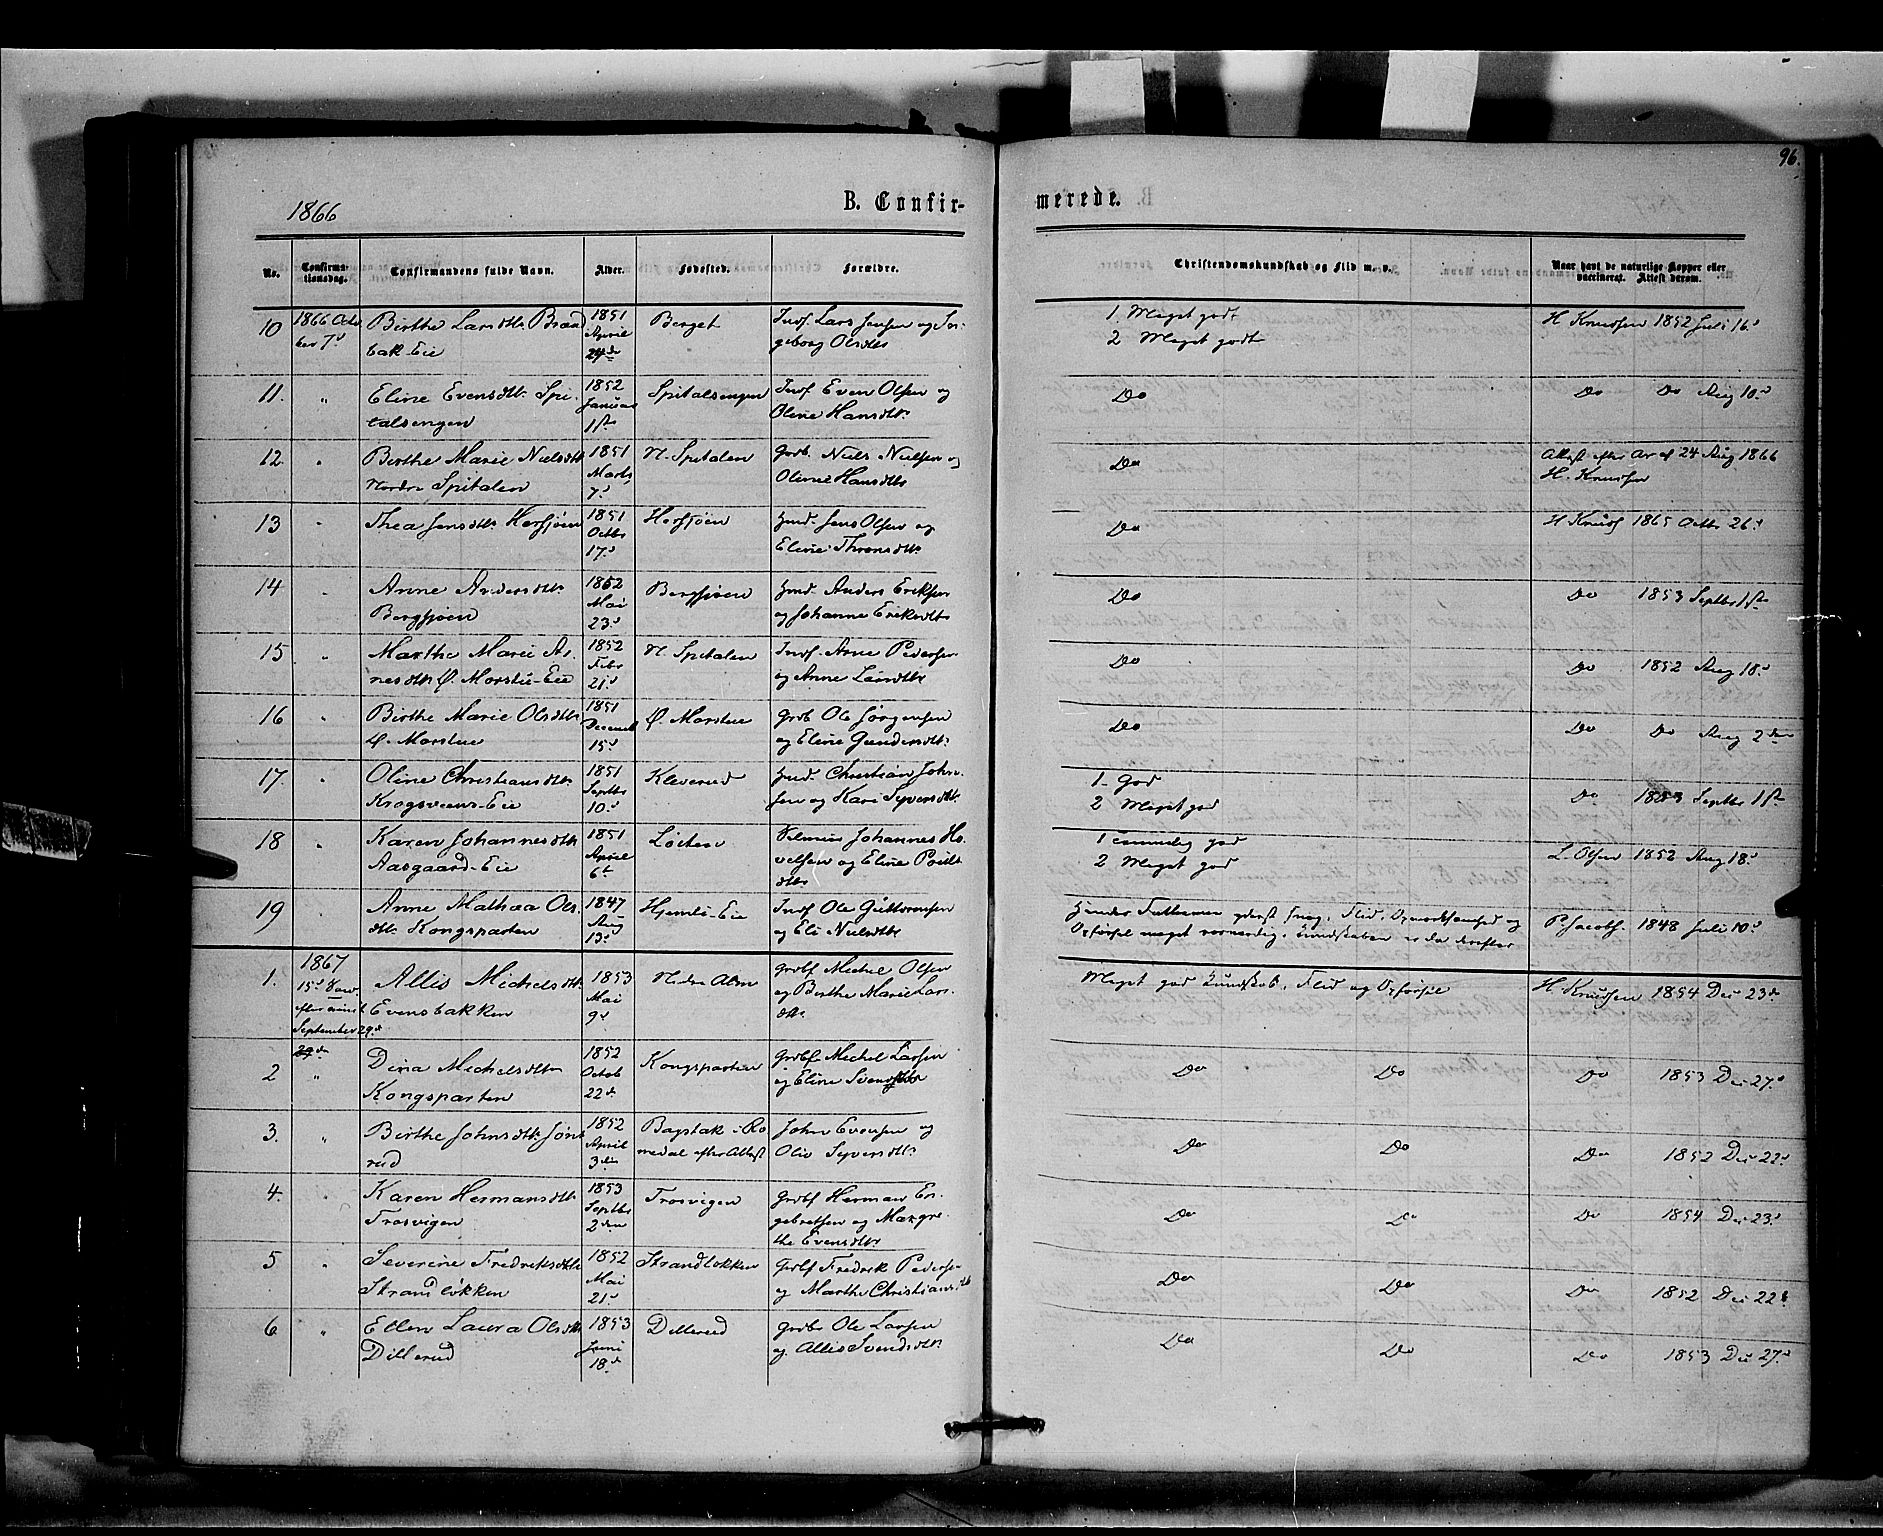 96.
1866
B. Confir-
merede.
No.
Confirma-
tionsdag.
Confirmandens fulde Navn.
Alder.
Fødested.
Forældre.
Christendomskundskab og Flid m. v.
Naar havt de naturlige Kopper eller
vaccineret. Attest derom.
10 1866 Octo
ber 7d
Birthe Larsdtr. Braad
bak-Eie
1851
April
24de
Berget
Indf. Lars Jensen og In-
geborg Olsdtr
1. Meget godt
2 Meget godt
H Knudsen 1852 Juli 16d
11. "
Eline Evensdtr. Spi-
talsengen
1852
Januar
1ste
Spitalsengen
Indf. Even Olsen og
Oline Hansdtr.
Do
Do Do Aug 10d
12 "
Birthe Marie Nielsdtr
Nordre Spitalen
1851
Marts
7d
N. Spitalen
Gaardb. Niels Nielsen og
Oline Hansdtr
Do
Attest efter Ar af 24 Aug 1866
H. Knudsen
13 "
Thea Jensdtr. Horsjøen
1851
Octbr
17d
Horsjøen
Huusm. Jens Olsen og
Eline Thronsdtr.
Do
H Knuds 1865 Octbr 26d
14 "
Anne Andersdtr.
Bergsjøen
1852
Mai
23d
Bergsjøen
Huusm. Anders Eriksen
og Johanne Eriksdtr
Do
Do 1853 Septbr 1ste
15 "
Marthe Marie Ar-
nesdtr. Ø. Morstu-Eie
1852
Febr
21d
N. Spitalen
Indf. Arne Pedersen
og Anne Larsdtr
Do
Do 1852 Aug 18d
16 "
Birthe Marie Olsdtr.
Ø. Morstue
1851
Decemb
15d
Ø. Morstue
Grdb Ole Jørgensen
og Eline Gundersdtr.
Do
Do Do Aug 2den
17. "
Oline Christiansdtr.
Krogsveens-Eie
1851
Septbr
10d
Kleverud
Huusm. Christian John-
sen og Kari Syversdtr.
1. God
2 Meget god
Do 1853 Septbr 1ste
18 "
Karen Johannesdtr
Aasgaard-Eie
1851
April
6te
Løiten
Selveier Johannes Ho-
velsen og Eline Pouls-
dtr
1 temmelig god
2 Meget god
L. Olsen 1852 Aug 18d
19 "
Anne Mathea Ols-
dtr. Kongsparten
1847
Aug
13d
Hjemli-Eie
Indf Ole Guttormsen
og Eli Nielsdtr
Hendes Fatteevne yderst svag, Flid, Opmærksomhed og
Opførsel meget rosværdig, Kundskaben er da derefter
P. Jacobs. 1848 Juli 10d
1. 1867
15d Sønd.
efter trinit
September 29d
Allis Michelsdtr.
Evensbakken
1853
Mai
9d
Nedre Alm
Grdbf Michel Olsen
og Birthe Marie Lars-
dtr.
Meget god Kundskab, Flid og Opførsel
H. Knudsen 1854 Dec 23d
29de
2 "
Dina Michelsdtr
Kongsparten
1852
Octob
22de
Kongsparten
Grdbf Michel Larsen
og Eline Svendsdtr
Do Do
Do 1853 Dec 27d
3. "
Birthe Johnsdtr. Jøns
rud
1852
April
3die
Bagstak i Ro
medal efter Attest
John Evensen og
Oliv Syversdtr.
Do Do
Do 1852 Dec 22d
4. "
Karen Hermansdtr
Frosvigen
1853
Septbr
2den
Frosvigen
Grdbf Herman En-
gebretsen og Margre-
the Evensdtr
Do Do
Do 1854 Dec 23d
5 "
Severine Fredriksdtr
Strandløkken
1852
Mai
21d
Strandløkken
Grdbf Fredrik Peders.
og Marthe Christiansdtr
Do Do
Do 1852 Dec 22d
6 "
Ellen Laura Olsdtr
Dillerud
1853
Juni
18de
Dillerud
Grdbr Ole Larsen
og Allis Svendsdtr.
Do Do
Do 1853 Dec 27d